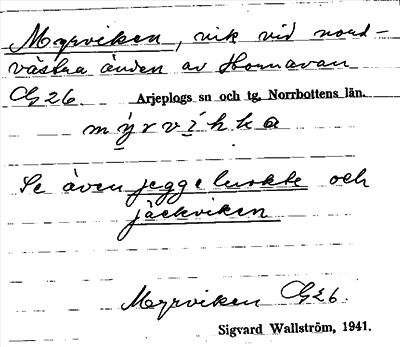 Myrviken, vik vid nord-
västra änden av Hornavan
G26. Arjeplogs sn och tg, Norrbottens län.
mýrvìkka
Se även jeggeluokte och
jäckviken
Myrviken G26.
Sigvard Wallström, 1941.